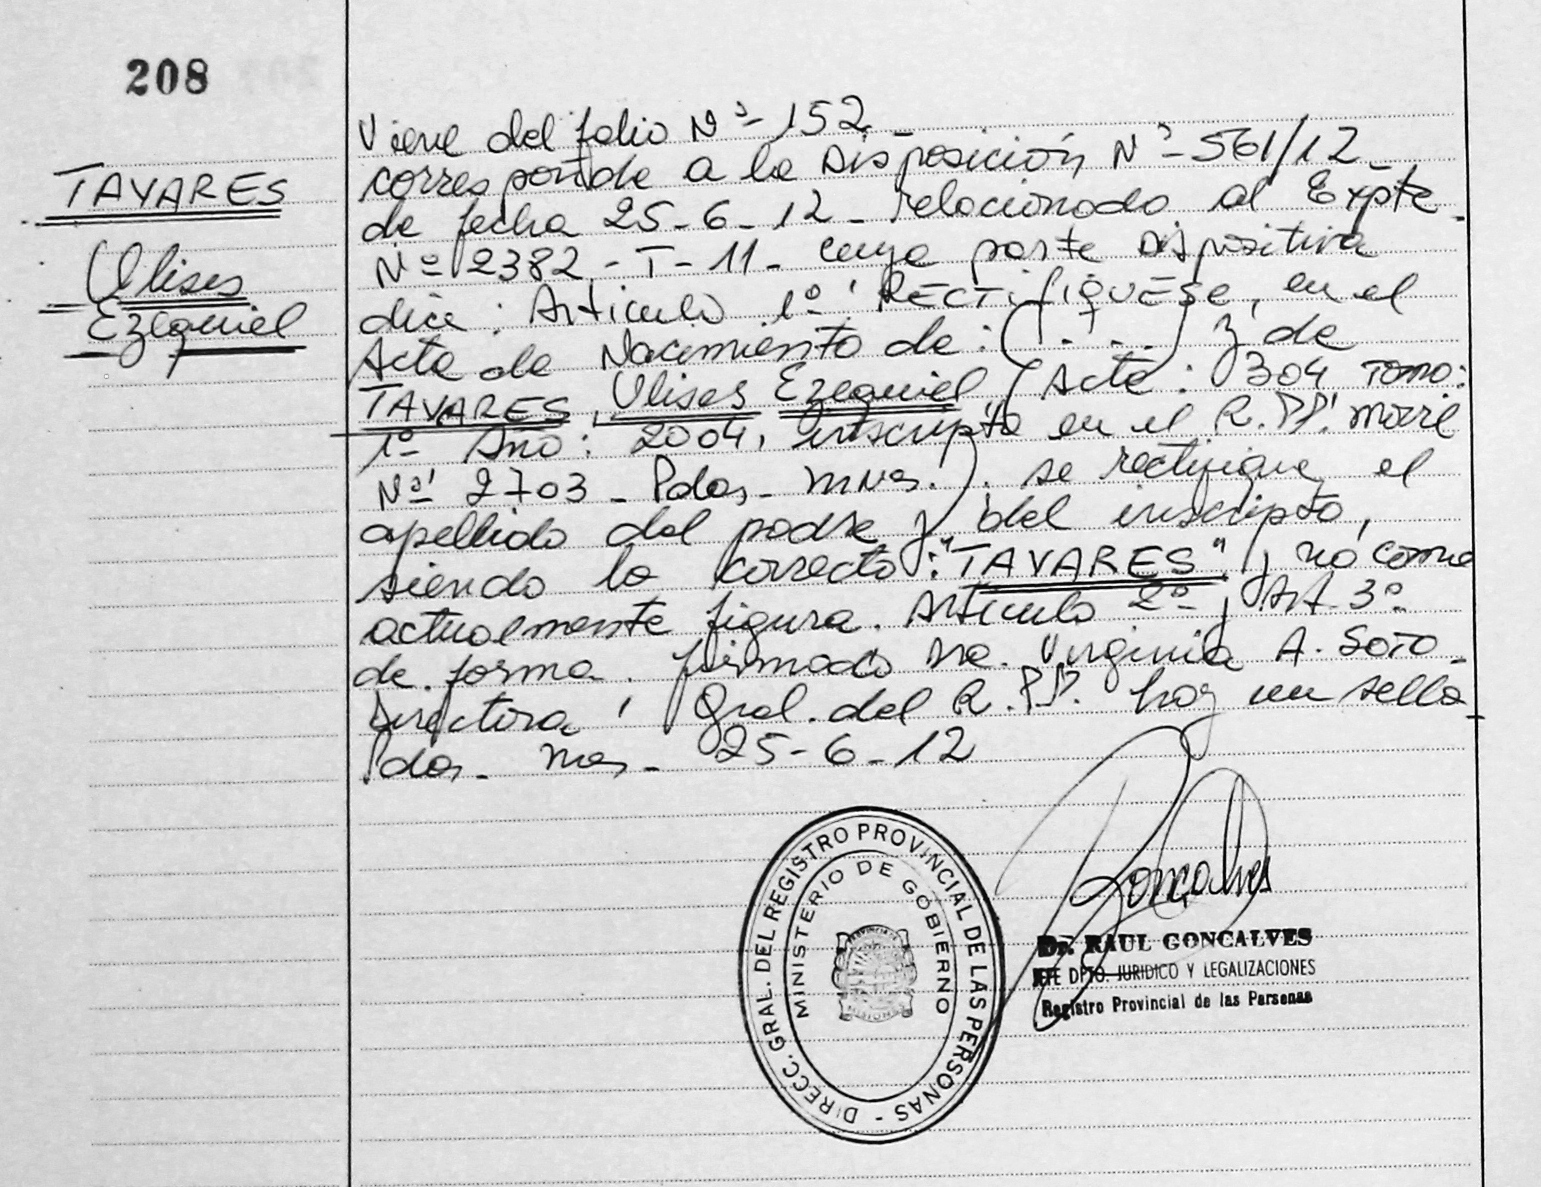 208
TAVARES
Ulises
Ezequiel
Viene del folio Nº 152 -
corresponde a la Disposición Nº 561/12 -
de fecha 25-6-12 - relacionado al Expte -
Nº 2382 - T - 11 - cuya parte Dispositiva
dice: Articulo 1º: RECTIFIQUESE, en el
Acta de Nacimiento de: (. . . .) y de
TAVARES, Ulises Ezequiel, (Acta: 304 Tomo:
1º Año: 2004, inscripto en el R.PP. Movil
Nº 2703 - Pdas - Mnes.). se rectifique el
apellido del padre y del inscripto,
siendo lo correcto: "TAVARES", y no como
actualmente figura. Articulo 2º y Art 3º
de forma. firmado Dra. Virginia A. Soto -
Directora Gral. del R.PP. hay un sello
Pdas - Mnes - 25-6-12
DIRECC. GRAL. DEL REGISTRO PROVINCIAL DE LAS PERSONAS -
MINISTERIO DE GOBIERNO
MISIONES
Goncalves
Dr. RAUL GONCALVES
JEFE DPTO. JURIDICO Y LEGALIZACIONES
Registro Provincial de las Personas